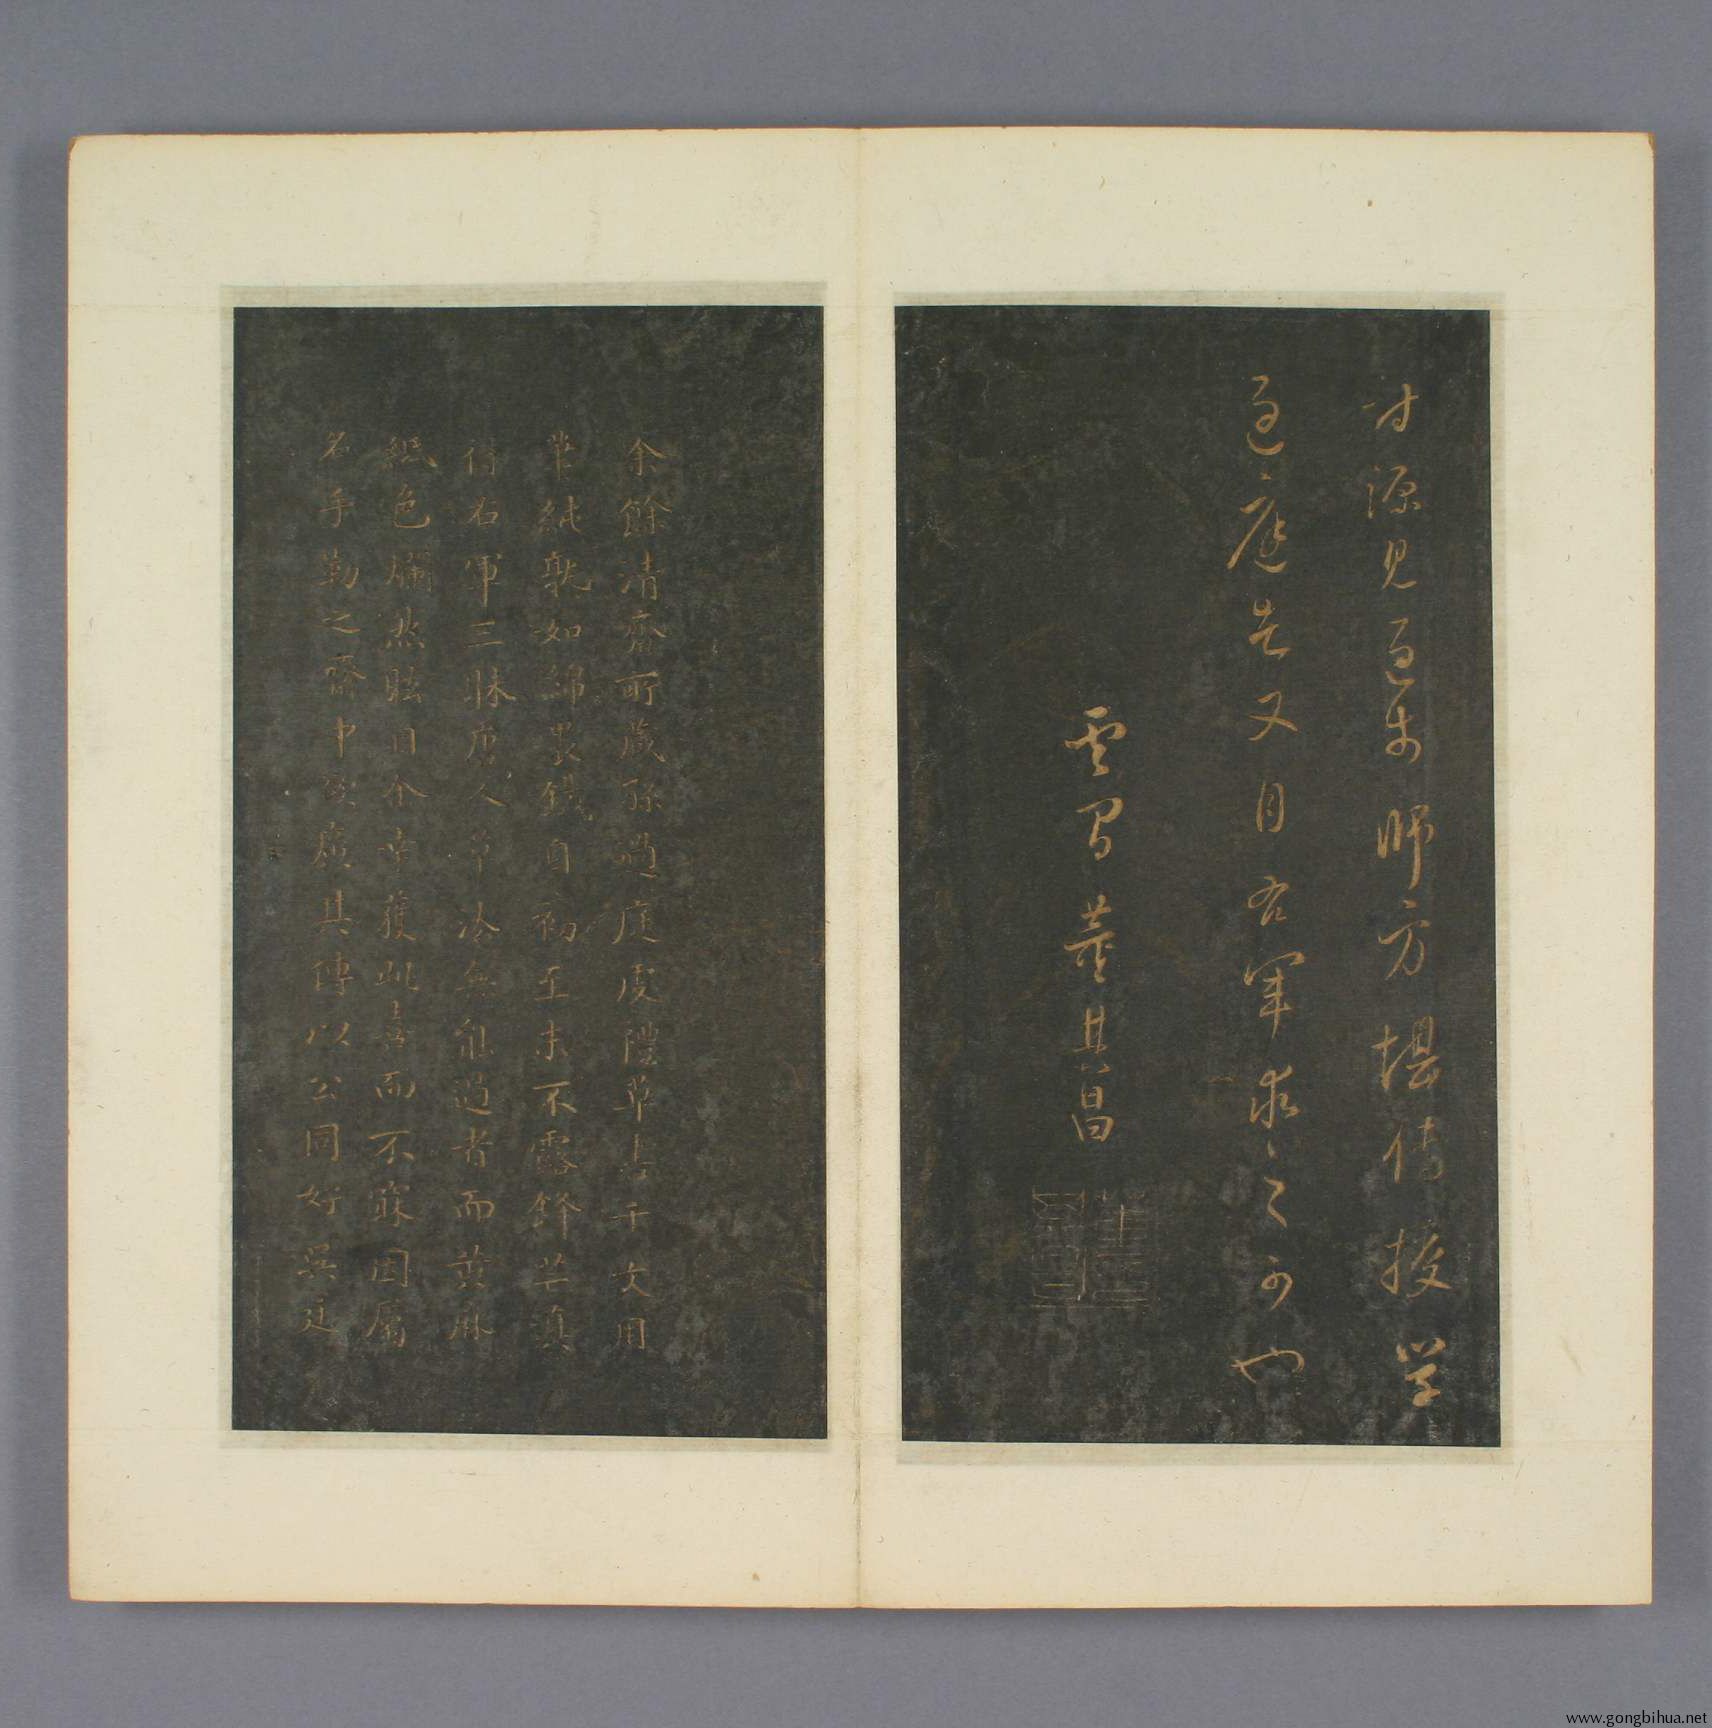 源見過於師方堪傳授學
過庭者又自右軍求之可也
雲間董其昌
余餘清齋所藏孫過庭虔禮草書千文用
筆純熟如綿裹鐵自初至末不露鋒芒真
得右軍三昧唐人草法無能過者而黃麻
紙色爛然眩目余幸獲此喜而不寐因屬
名手勒之齋中欲廣其傳以公同好吳廷
www.gongbihua.net